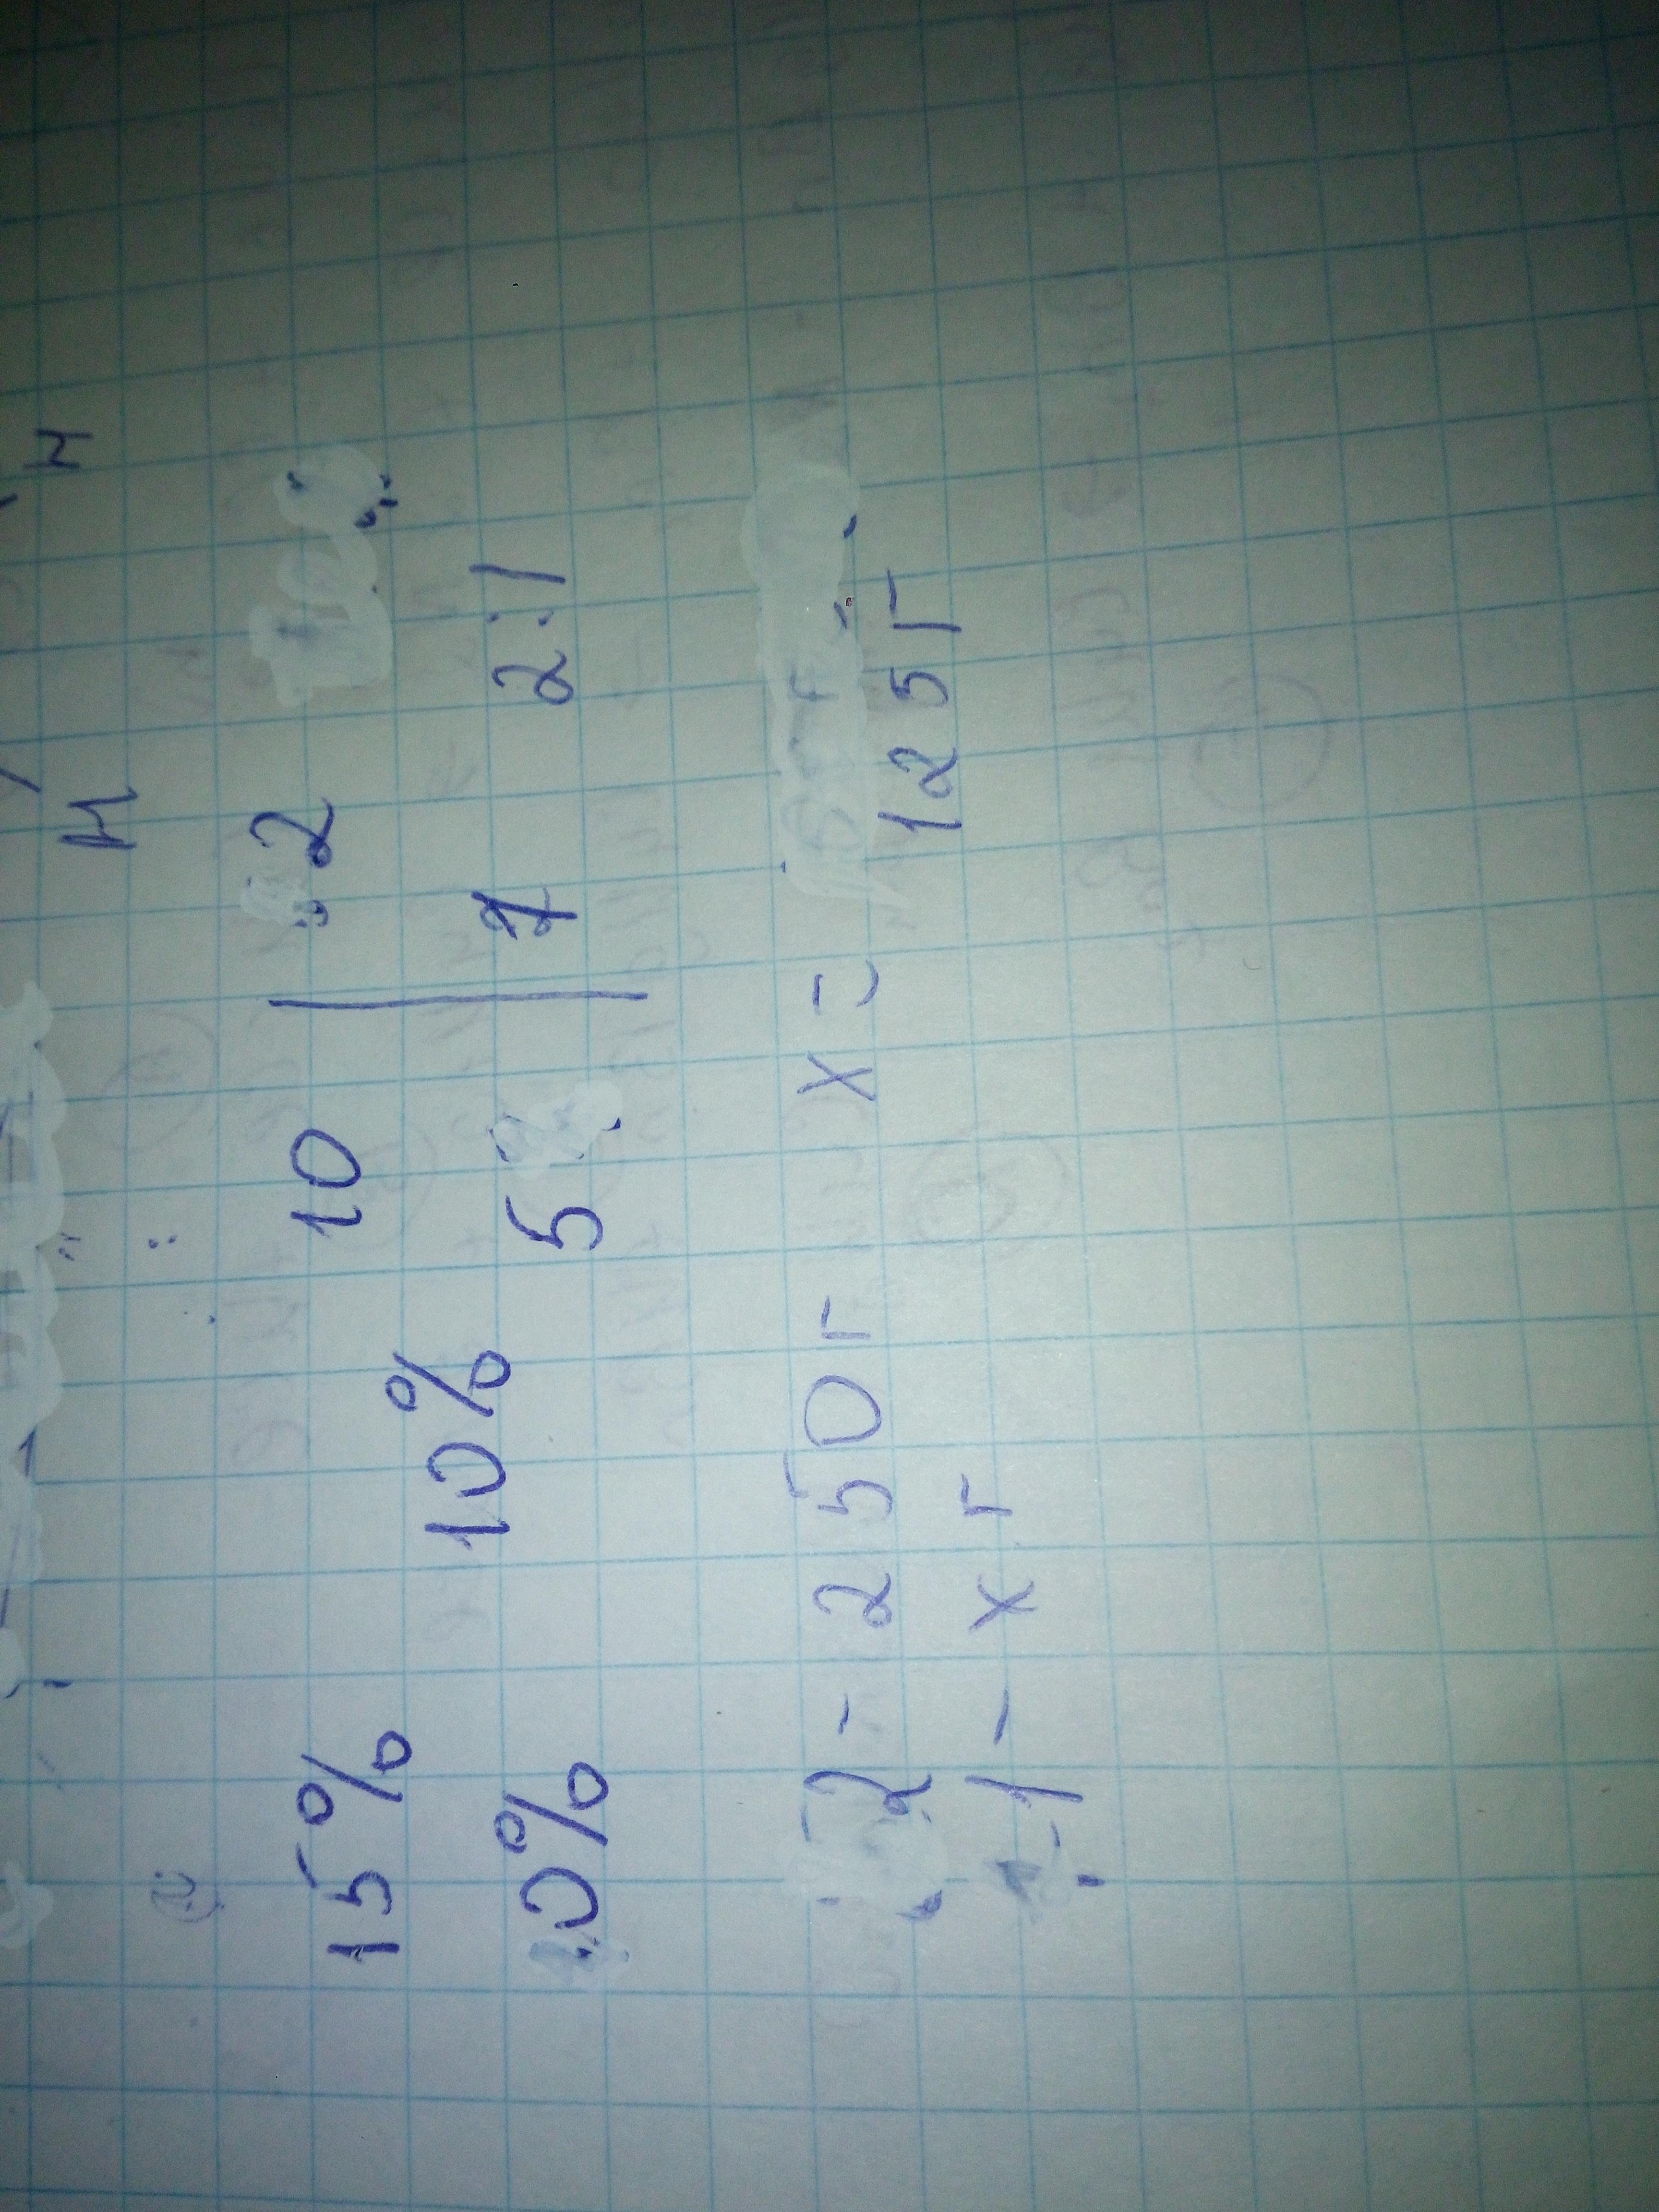 15% 10 2
10%
10% 5 1 2:1
2 - 250г x =
1 - x г 125г